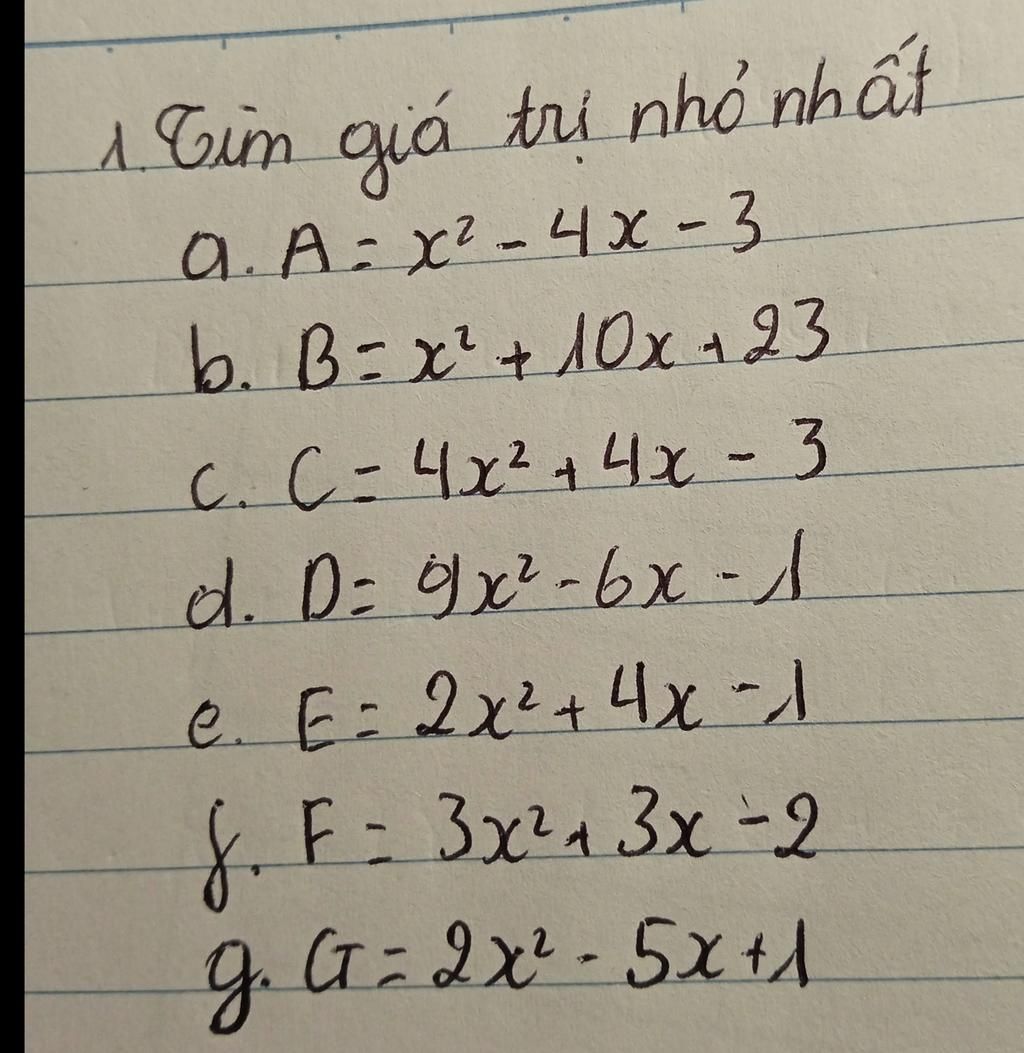 1. Tìm giá trị nhỏ nhất
a. A = x² - 4x - 3
b. B = x² + 10x + 23
c. C = 4x² + 4x - 3
d. D = 9x² - 6x - 1
e. E = 2x² + 4x - 1
f. F = 3x² + 3x - 2
g. G = 2x² - 5x + 1